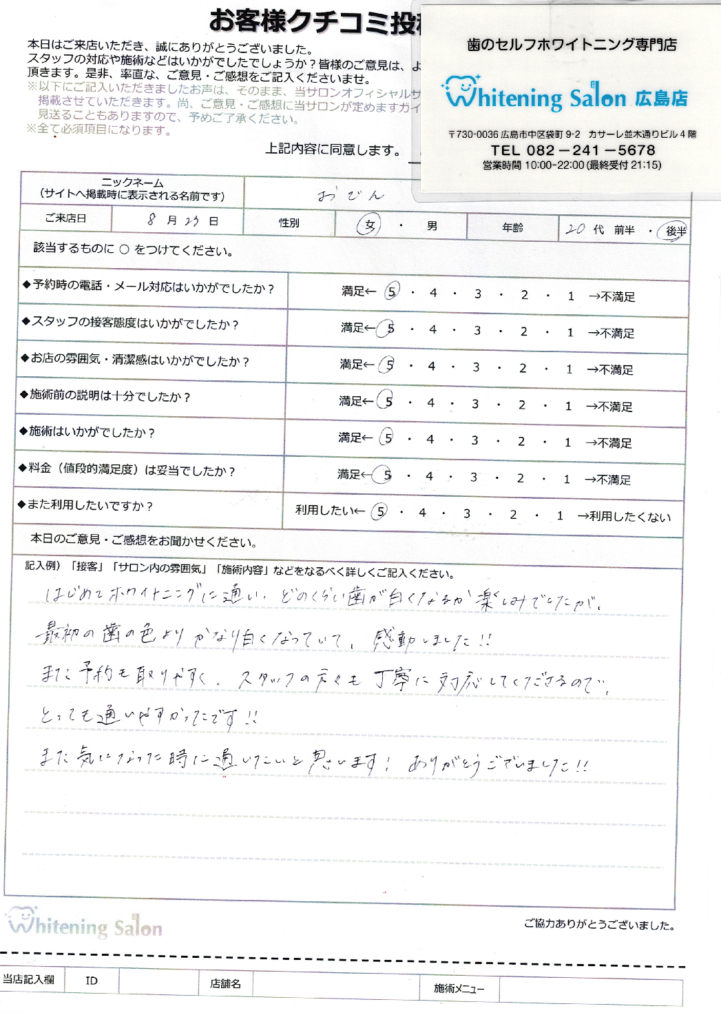 お客様クチコミ投稿
本日はご来店いただき、誠にありがとうございました。
スタッフの対応や施術などはいかがでしたでしょうか？皆様のご意見は、よ
頂きます。是非、率直な、ご意見・ご感想をご記入くださいませ。
※以下にご記入いただきましたお声は、そのまま、当サロンオフィシャルサ
掲載させていただきます。尚、ご意見・ご感想に当サロンが定めますガイ
見送ることもありますので、予めご了承ください。
※全て必須項目になります。
上記内容に同意します。
歯のセルフホワイトニング専門店
Whitening Salon 広島店
〒730-0036 広島市中区袋町 9-2 カサーレ並木通りビル 4 階
TEL 082－241－5678
営業時間 10:00-22:00 (最終受付 21:15)
ニックネーム
（サイトへ掲載時に表示される名前です） おでん
ご来店日 8 月 27 日 性別 女 ・ 男 年齢 20 代 前半 ・ 後半
該当するものに ○ をつけてください。
◆予約時の電話・メール対応はいかがでしたか？ 満足← 5 ・ 4 ・ 3 ・ 2 ・ 1 →不満足
◆スタッフの接客態度はいかがでしたか？ 満足← 5 ・ 4 ・ 3 ・ 2 ・ 1 →不満足
◆お店の雰囲気・清潔感はいかがでしたか？ 満足← 5 ・ 4 ・ 3 ・ 2 ・ 1 →不満足
◆施術前の説明は十分でしたか？ 満足← 5 ・ 4 ・ 3 ・ 2 ・ 1 →不満足
◆施術はいかがでしたか？ 満足← 5 ・ 4 ・ 3 ・ 2 ・ 1 →不満足
◆料金（値段的満足度）は妥当でしたか？ 満足← 5 ・ 4 ・ 3 ・ 2 ・ 1 →不満足
◆また利用したいですか？ 利用したい← 5 ・ 4 ・ 3 ・ 2 ・ 1 →利用したくない
本日のご意見・ご感想をお聞かせください。
記入例）「接客」「サロン内の雰囲気」「施術内容」などをなるべく詳しくご記入ください。
はじめてホワイトニングに通い、どのくらい歯が白くなるか楽しみでしたが、
最初の歯の色よりかなり白くなっていて、感動しました!!
また予約も取りやすく、スタッフの方々も丁寧に対応してくださるので、
とっても通いやすかったです!!
また気になった時に通いたいと思います! ありがとうございました!!
Whitening Salon
ご協力ありがとうございました。
当店記入欄 ID 店舗名 施術メニュー